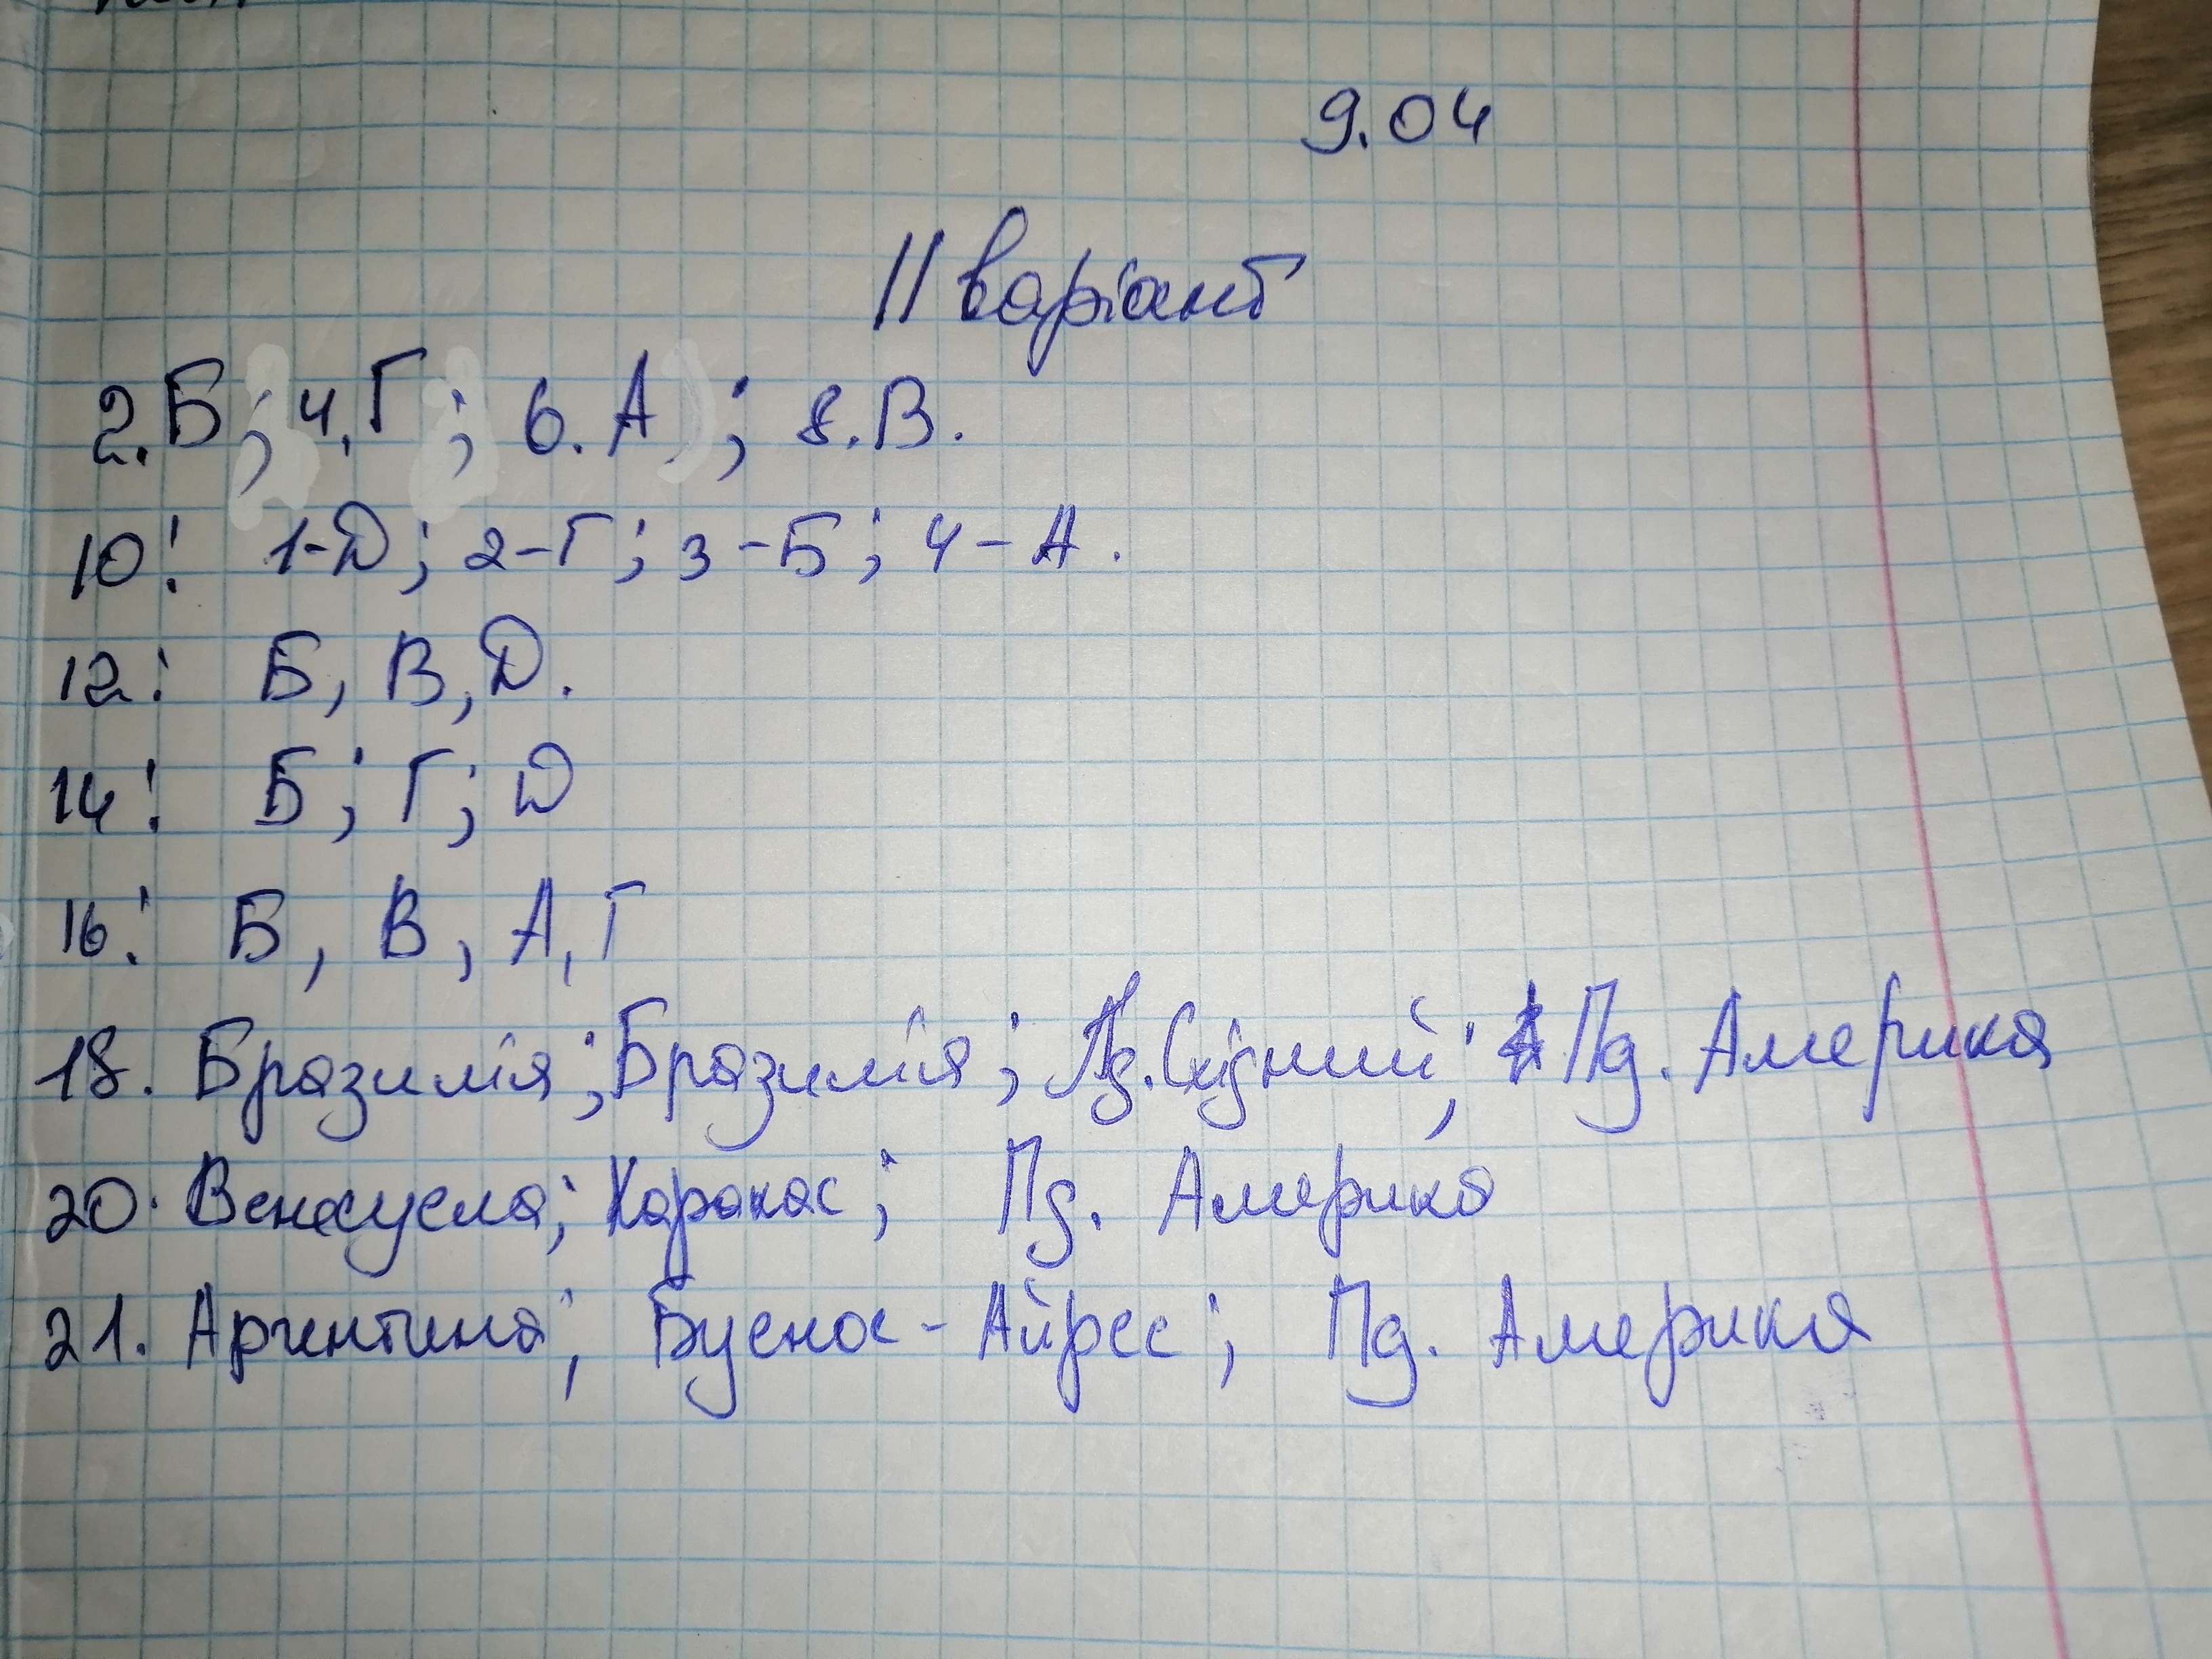 9.04
II варіант
2. Б; 4. Г; 6. А; 8. В.
10: 1-Д; 2-Г; 3-Б; 4-А.
12: Б, В, Д.
14: Б; Г; Д
16: Б, В, А, Г
18. Бразилія; Бразилія; Пд. Східний; Пд. Америка
20. Венесуела; Каракас; Пд. Америка
21. Аргентина; Буенос-Айрес; Пд. Америка